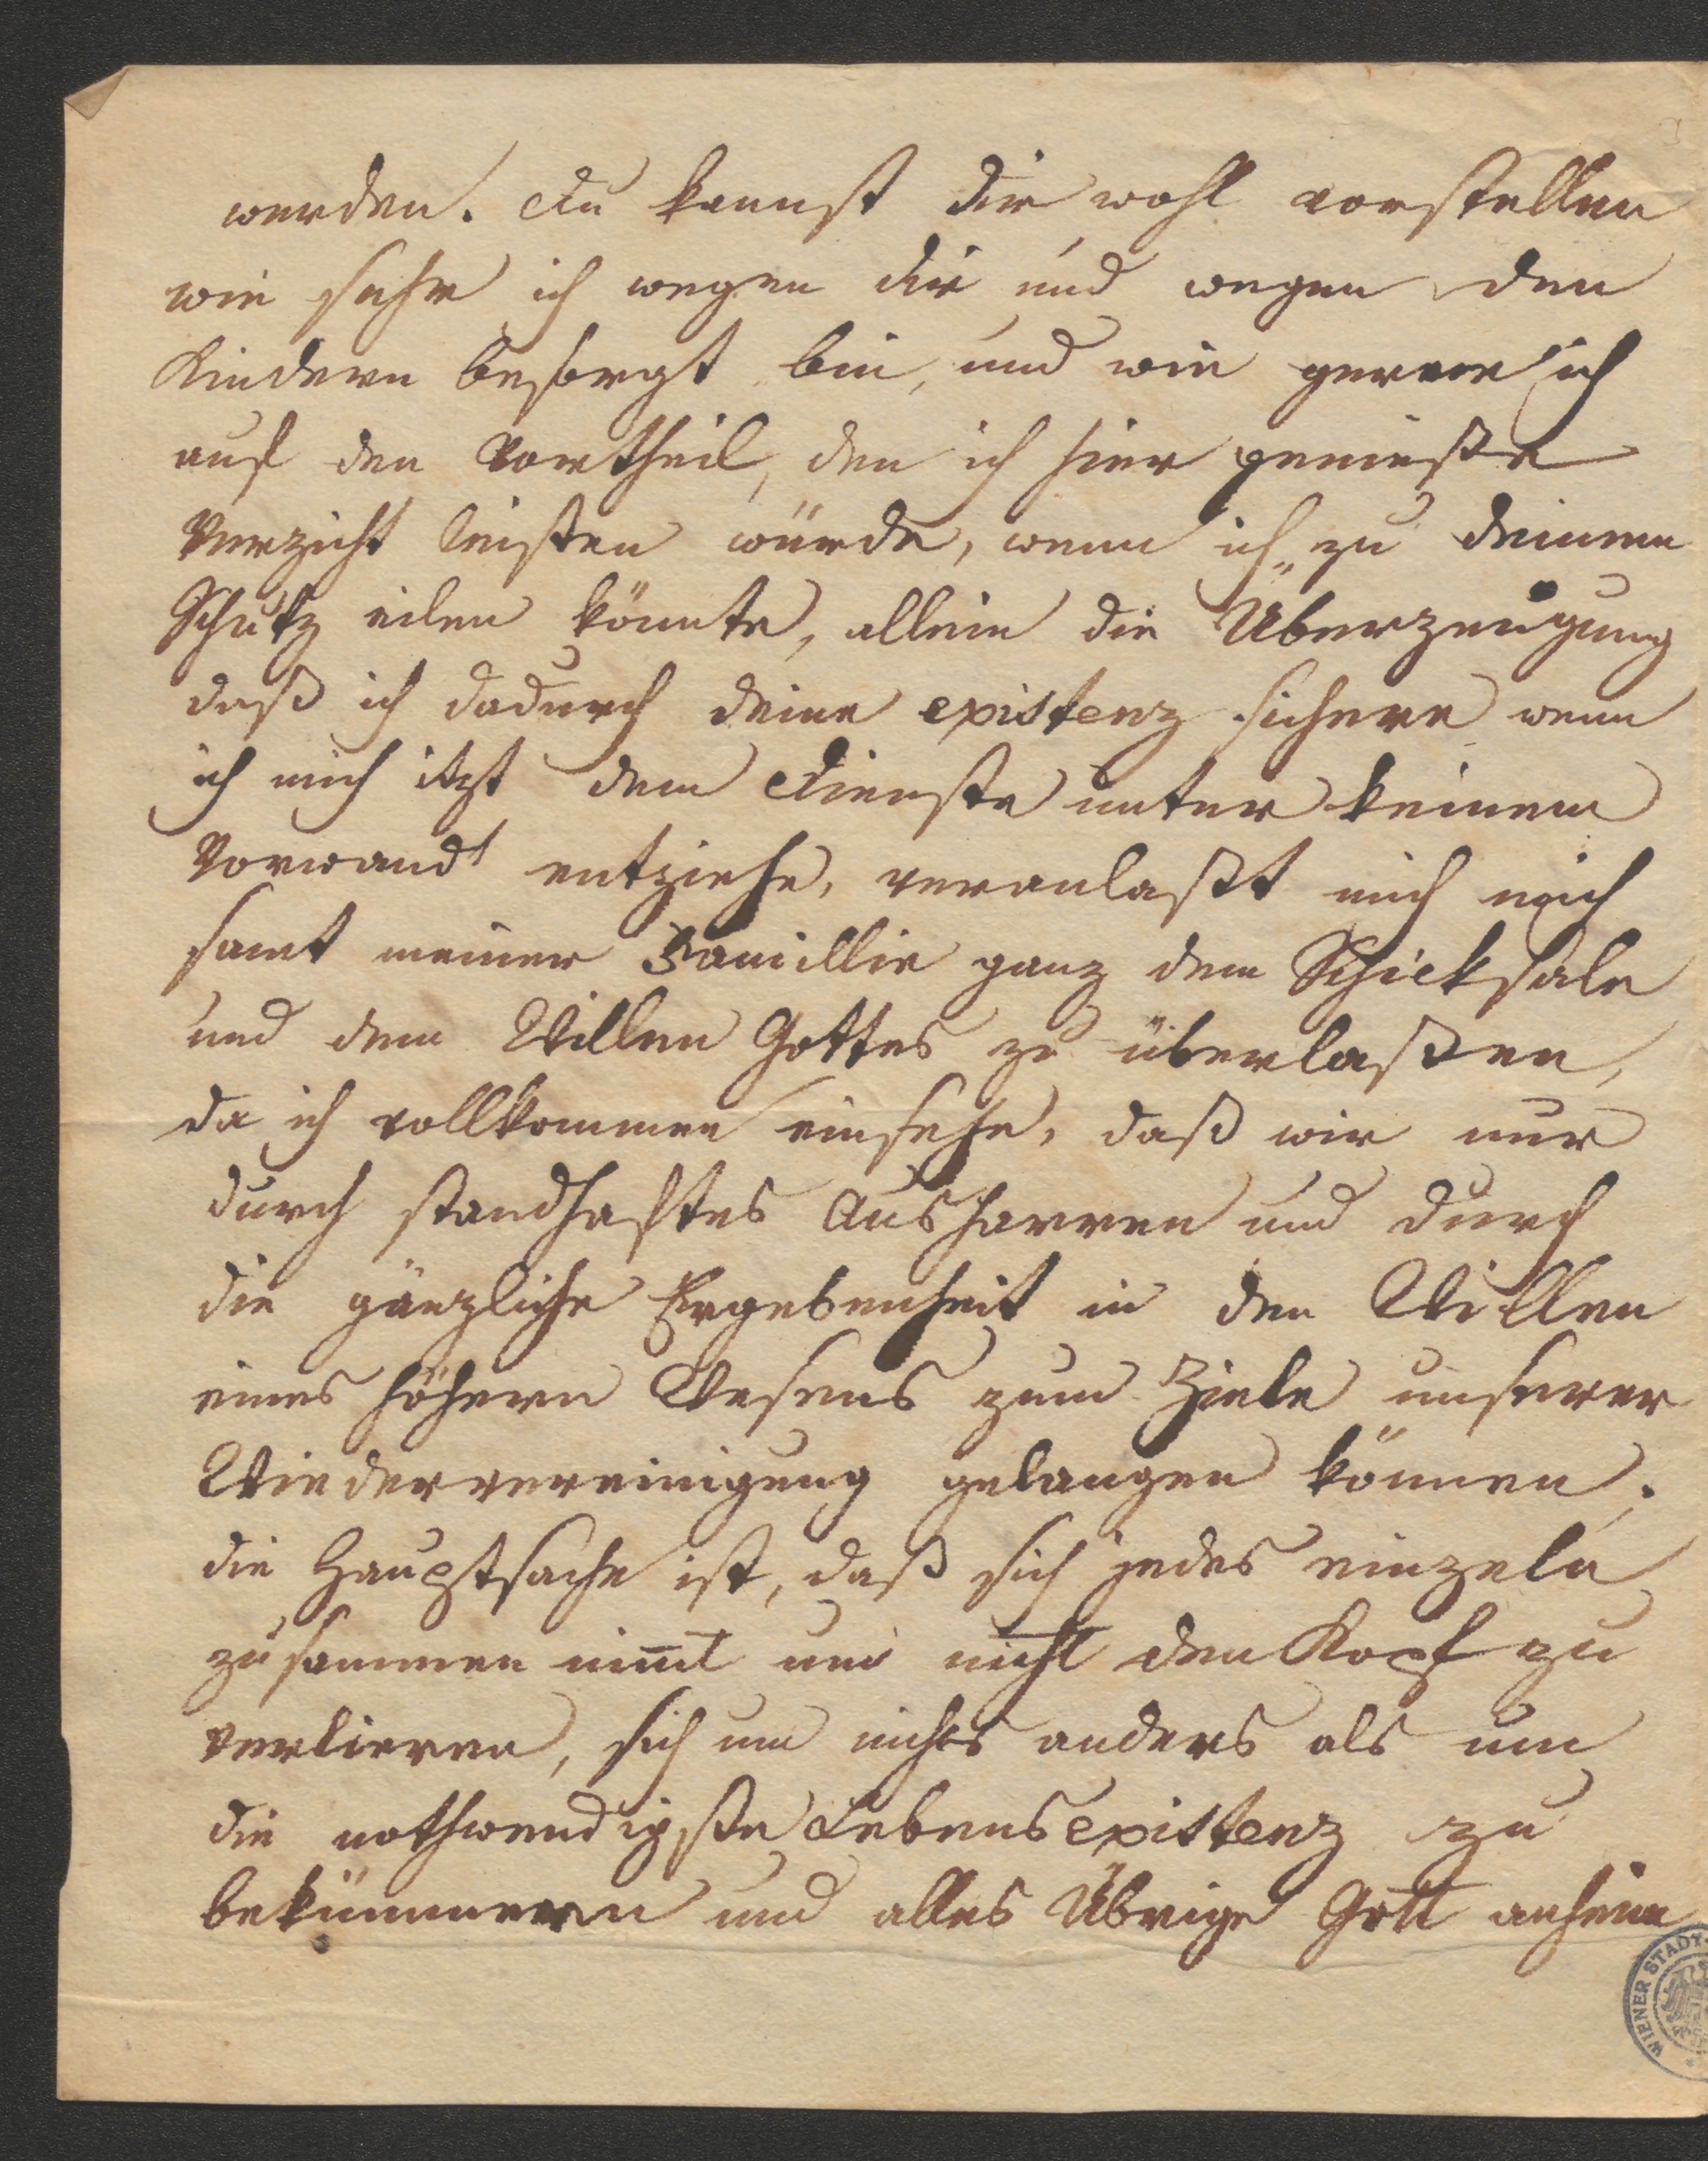 werden. Du kannst dir wohl vorstellen
wie sehr ich wegen dir und wegen den
Kindern besorgt bin, und wie gerne ich
auf den Vortheil, den ich hier genieße
Verzicht leisten würde, wenn ich zu deinem
Schutz eilen könnte, allein die Überzeugung
daß ich dadurch deine existenz sichere wenn
ich mich itzt dem Dienste unter keinem
Vorwandt entziehe, veranlaßt mich mich
samt meiner Familie ganz dem Schicksale
und dem Willen Gottes zu überlaßen,
da ich vollkommen einsehe, daß wir nur
durch standhaftes Ausharren und durch
die gänzliche Ergebenheit in den Willen
eines höhern Wesens zum Ziele unserer
Wiedervereinigung gelangen können.
die Hauptsache ist, daß sich jedes einzeln
zusammen nim̅t um nicht den Kopf zu
verlieren, sich um nichts anders als um
die nothwendigste Lebensexistenz zu
bekümmern und alles Übrige Gott anheim
WIENER STADT-